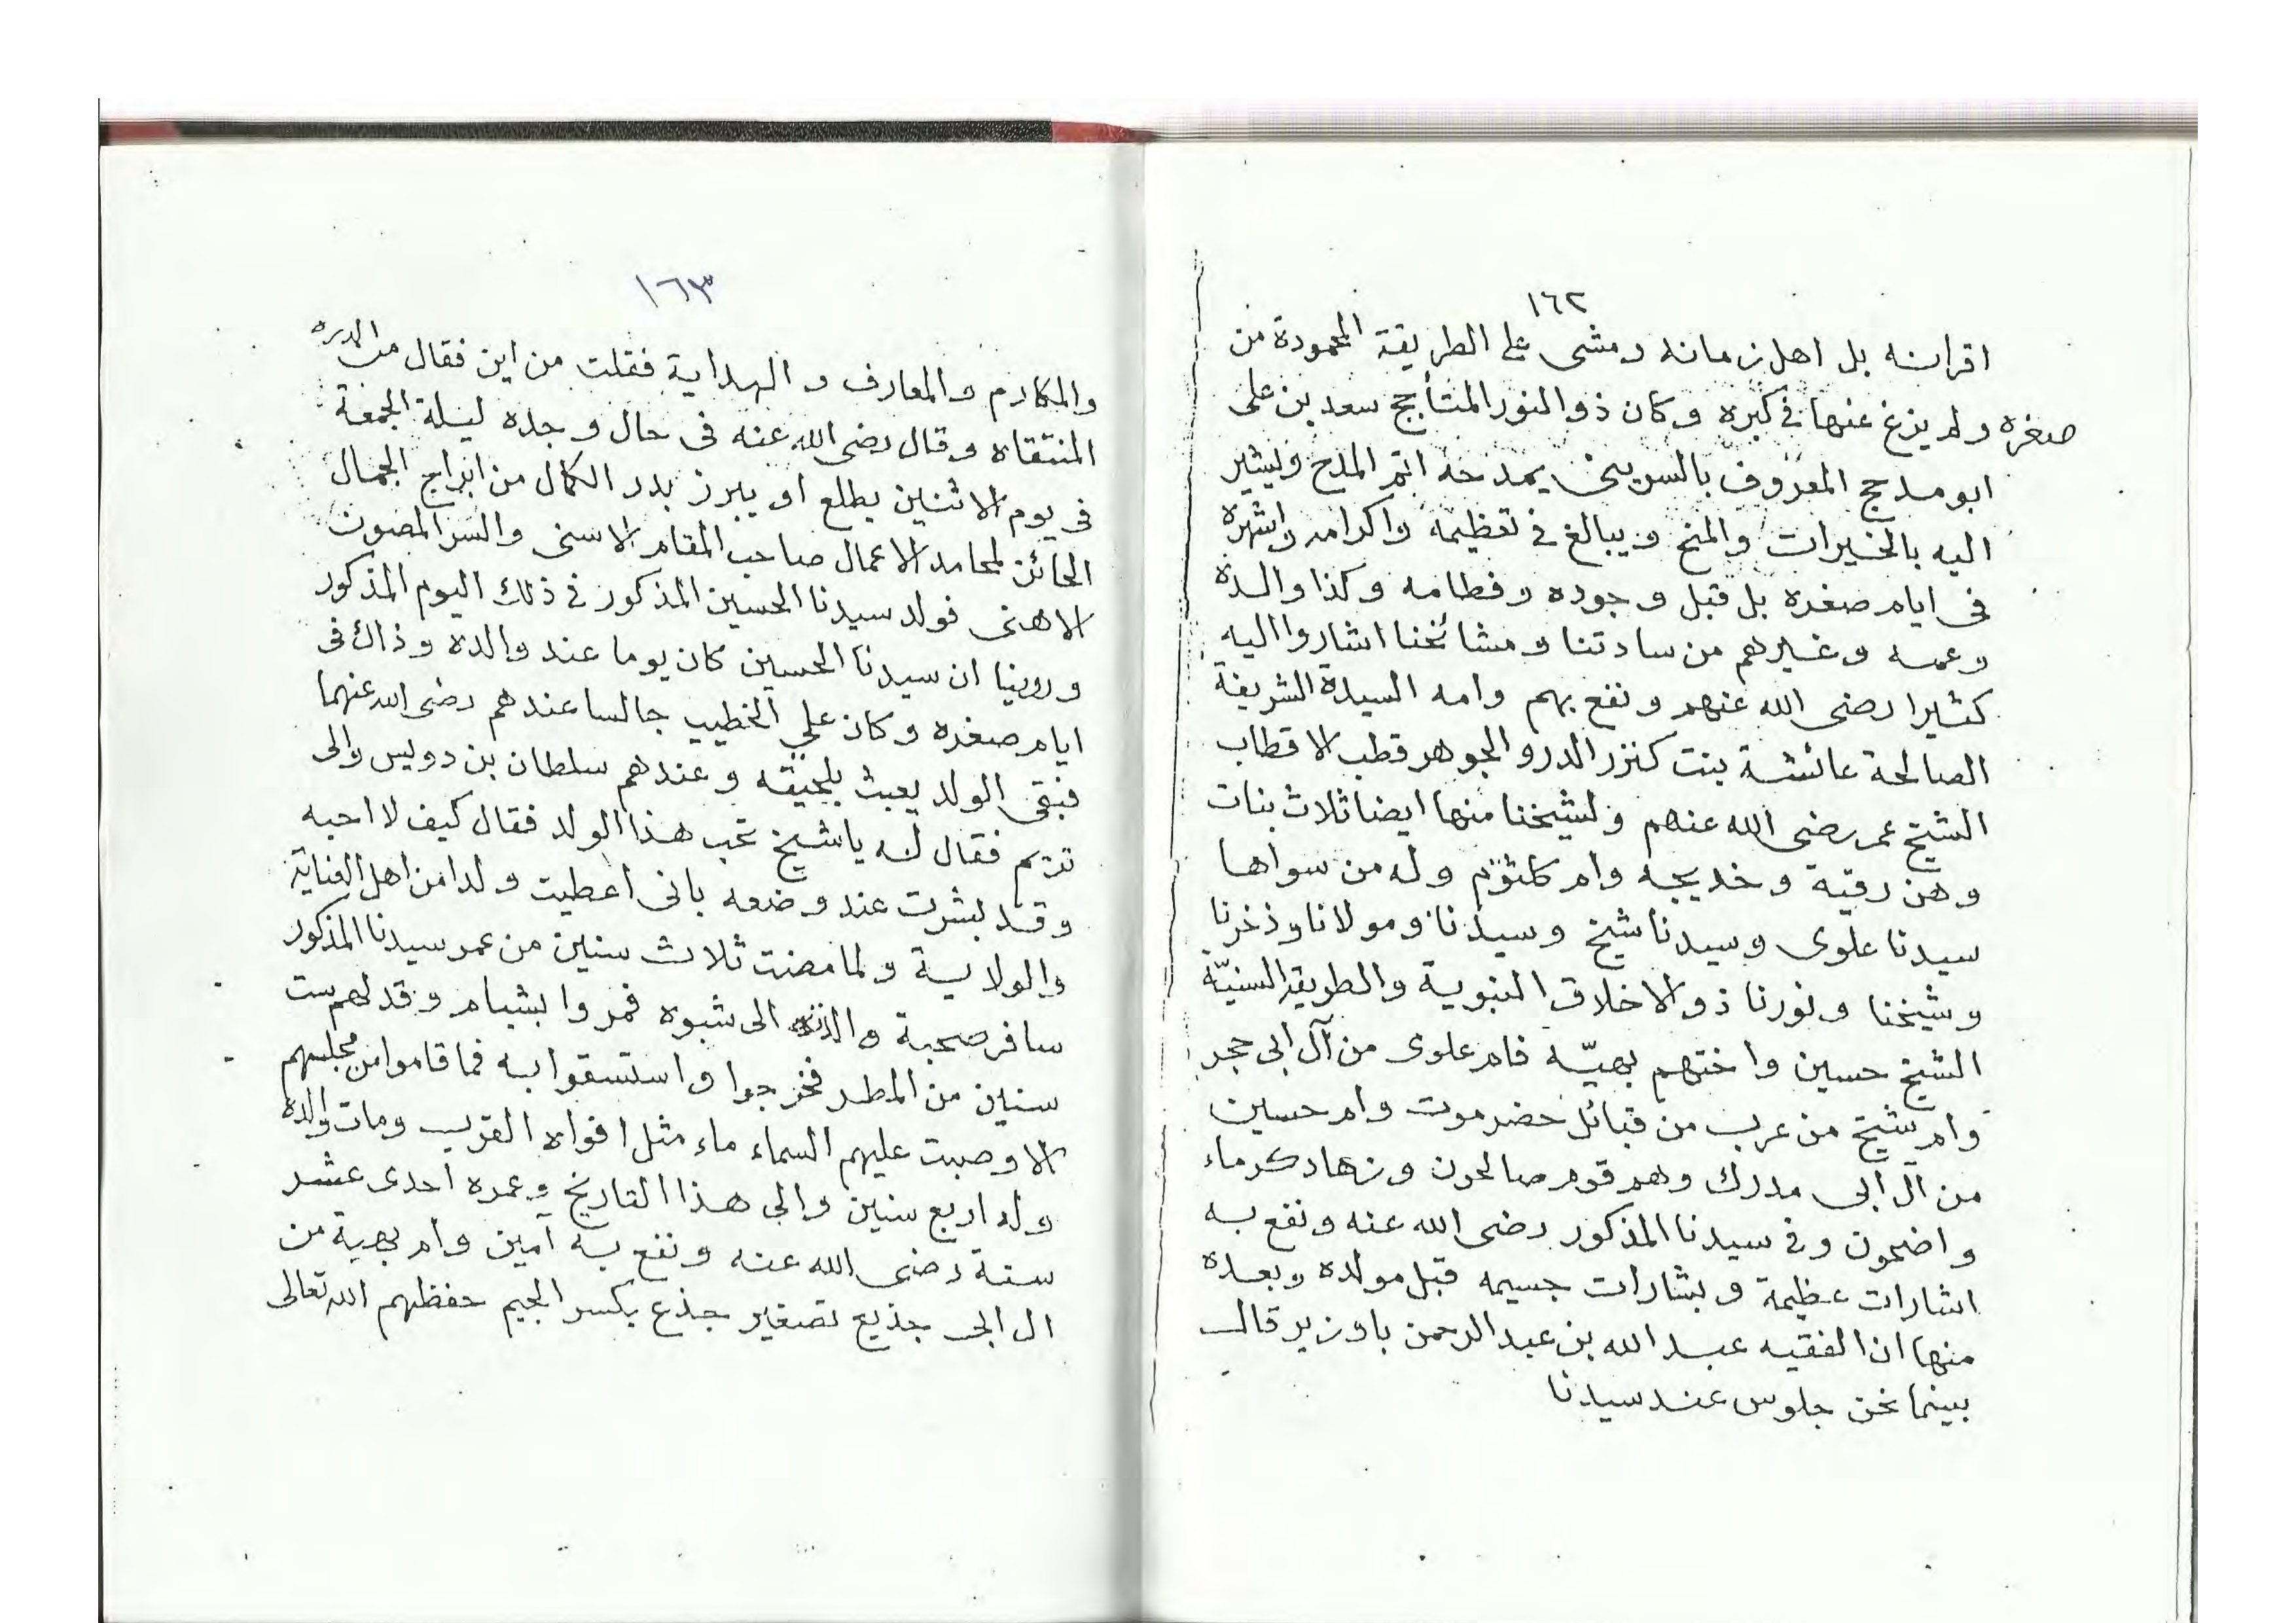 ١٦٢
اقرانه بل اهل زمانه ومشى على الطريقة المحمودة من
صغره ولم يزغ عنها فى كبره وكان ذو النور المتأجج سعد بن على
ابو مدحج المعروف بالسويني يمدحه اتم المدح ويشير
اليه بالخيرات والمنح ويبالغ فى تعظيمه واكرامه واشهره
فى ايام صغره بل قبل وجوده وفطامه وكذا والده
وعمه وغيرهم من سادتنا ومشائخنا اشاروا اليه
كثيرا رضى الله عنهم ونفع بهم وامه السيدة الشريفة
الصالحة عائشة بنت كنز الدر والجوهر قطب الاقطاب
الشيخ عمر رضى الله عنهم ولشيخنا منها ايضا ثلاث بنات
وهن رقية وخديجه وام كلثوم وله من سواها
سيدنا علوى وسيدنا شيخ وسيدنا ومولانا وذخرنا
وشيخنا ونورنا ذو الاخلاق النبوية والطريقة السنيّة
الشيخ حسين واختهم بهيّه فام علوى من آل ابى حجر
وام شيخ من عرب من قبائل حضرموت وام حسين
من آل ابى مدرك وهم قوم صالحون وزهاد كرماء
واضحون وفى سيدنا المذكور رضى الله عنه ونفع به
اشارات عظيمة وبشارات جسيمه قبل مولده وبعده
منها ان الفقيه عبد الله بن عبد الرحمن باوزير قال
بينما نحن جلوس عند سيدنا
١٦٣
والمكارم والمعارف والهداية فقلت من اين فقال من الدره
المنتقاه وقال رضى الله عنه فى حال وجده ليلة الجمعة
فى يوم الاثنين يطلع او يبرز بدر الكمال من ابراج الجمال
الحائز لمحامد الاعمال صاحب المقام الاسنى والسر المصون
الاهنى فولد سيدنا الحسين المذكور فى ذلك اليوم المذكور
وروينا ان سيدنا الحسين كان يوما عند والده وذاك فى
ايام صغره وكان على الخطيب جالسا عندهم رضى الله عنهما
فبقى الولد يعبث بلحيته وعندهم سلطان بن دويس والى
تريم فقال له يا شيخ تحب هذا الولد فقال كيف لا احبه
وقد بشرت عند وضعه بانى اعطيت ولدا من اهل العناية
والولاية ولما مضت ثلاث سنين من عمر سيدنا المذكور
سافر صحبة والده الى شبوه فمروا بشبام وقد لهم ست
سنين من المطر فخرجوا واستسقوا به فما قاموا من مجلسهم
الا وصبت عليهم السماء ماء مثل افواه القرب ومات والده
وله اربع سنين والى هذا التاريخ وعمره احدى عشر
سنة رضى الله عنه ونفع به آمين وام بهية من
ال ابى جذيع تصغير جذع بكسر الجيم حفظهم الله تعالى